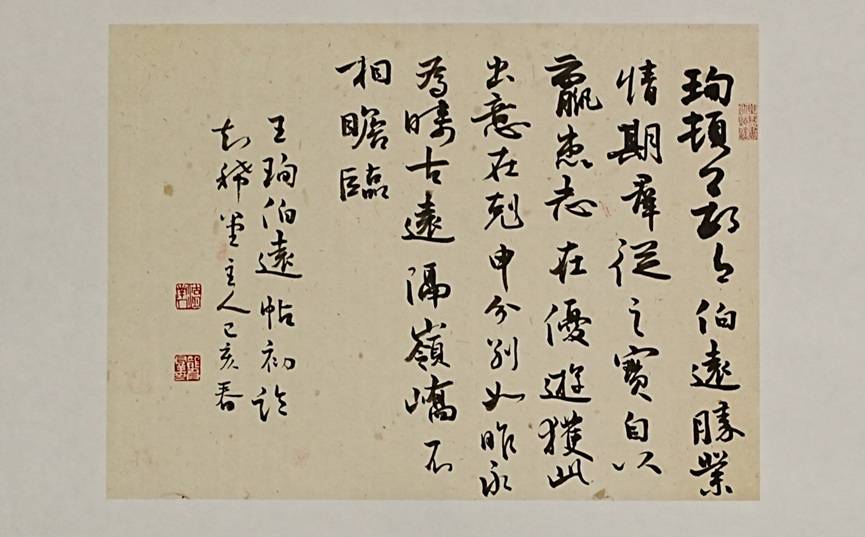 珣頓首頓首伯遠勝業
情期群從之寶自以
羸患志在優遊獲此
出意在剋申分別如昨永
為疇古遠隔嶺嶠不
相瞻臨
王珣伯遠帖初臨
知稀堂主人己亥春